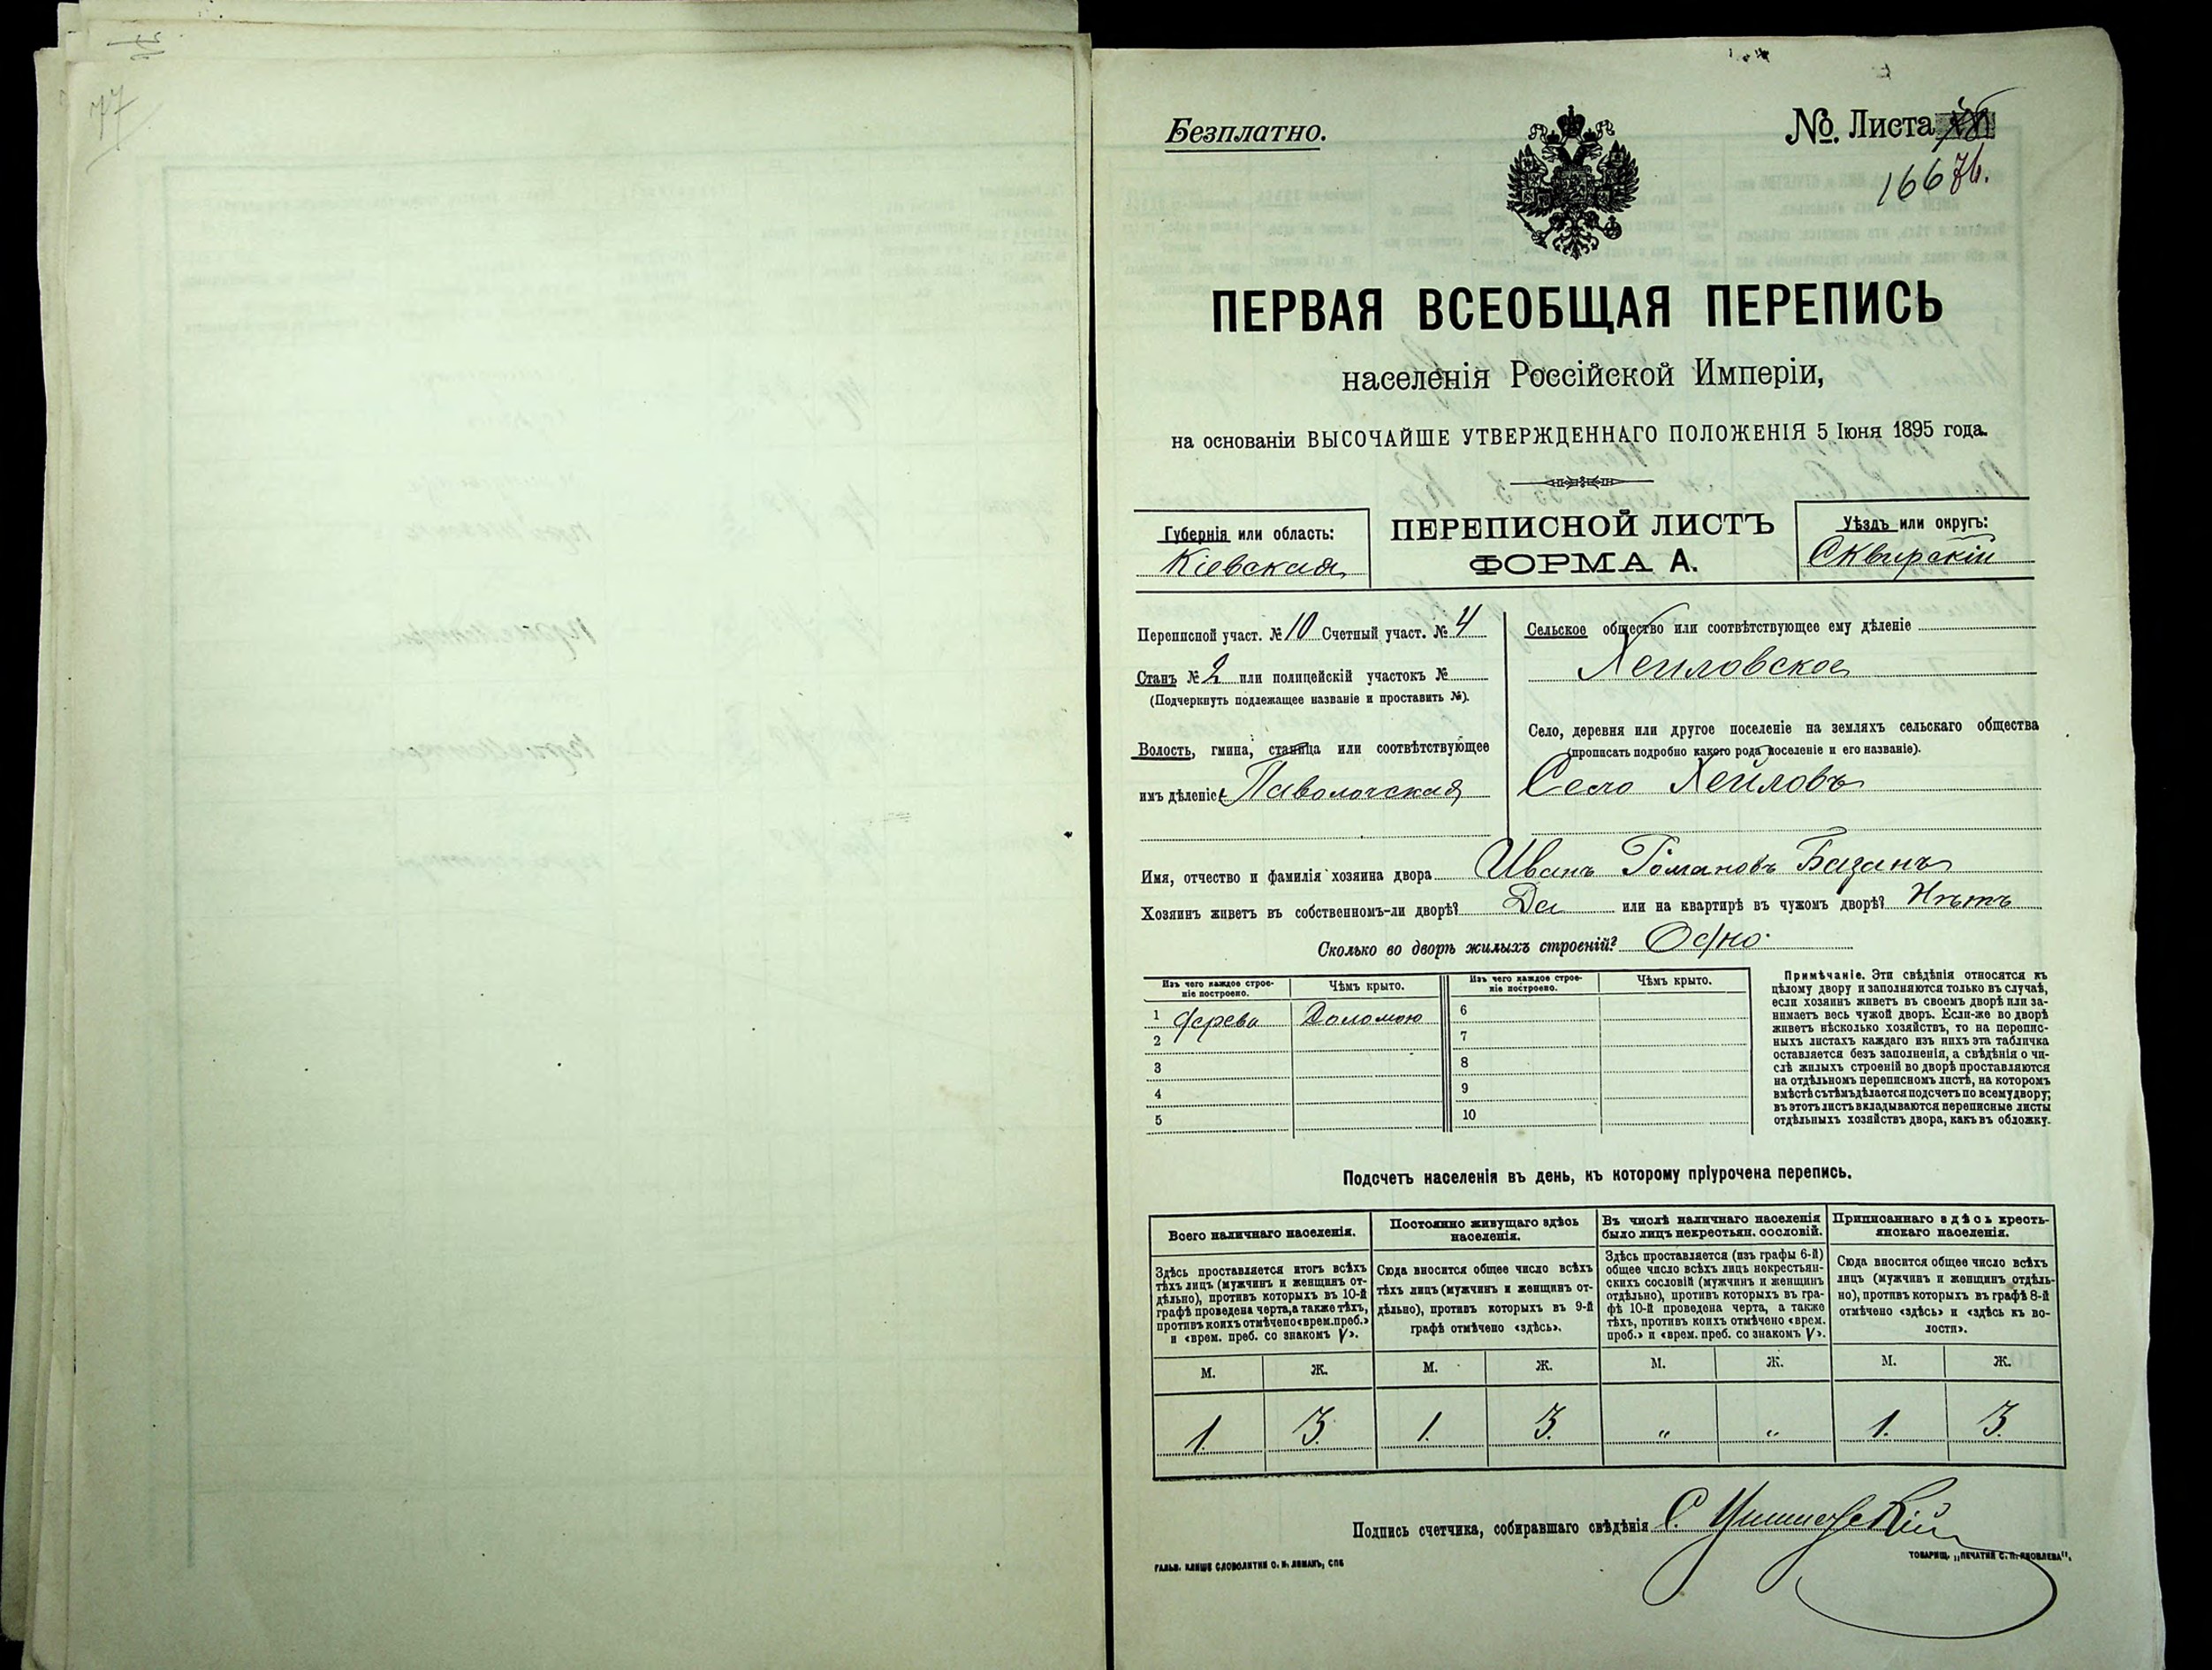 77
Безплатно.
№ Листа
166 76.
ПЕРВАЯ ВСЕОБЩАЯ ПЕРЕПИСЬ
населенія Россійской Имперіи,
на основаніи ВЫСОЧАЙШЕ УТВЕРЖДЕННАГО ПОЛОЖЕНІЯ 5 Іюня 1895 года.
Губернія или область:
Кіевская
ПЕРЕПИСНОЙ ЛИСТЪ
ФОРМА А.
Уѣздъ или округъ:
Сквирскій
Переписной участ. № 10 Счетный участ. № 4
Станъ № 2 или полицейскій участокъ №
(Подчеркнуть подлежащее названіе и проставить №).
Волость, гмина, станица или соотвѣтствующее
имъ дѣленіе Паволочская
Сельское общество или соотвѣтствующее ему дѣленіе
Хейловское
Село, деревня или другое поселеніе на земляхъ сельскаго общества
(прописать подробно какого рода поселеніе и его названіе).
Село Хейловъ
Имя, отчество и фамилія хозяина двора Иванъ Романовъ Базанъ
Хозяинъ живетъ въ собственномъ-ли дворѣ? Да или на квартирѣ въ чужомъ дворѣ? Нѣтъ
Сколько во дворѣ жилыхъ строеній? Одно.
Изъ чего каждое строе-
ніе построено.
Чѣмъ крыто.
1 дерева Соломою
2
3
4
5
Изъ чего каждое строе-
ніе построено.
Чѣмъ крыто.
6
7
8
9
10
Примѣчаніе. Эти свѣдѣнія относятся къ
цѣлому двору и заполняются только въ случаѣ,
если хозяинъ живетъ въ своемъ дворѣ или за-
нимаетъ весь чужой дворъ. Если-же во дворѣ
живетъ нѣсколько хозяйствъ, то на перепис-
ныхъ листахъ каждаго изъ нихъ эта табличка
оставляется безъ заполненія, а свѣдѣнія о чи-
слѣ жилыхъ строеній во дворѣ проставляются
на отдѣльномъ переписномъ листѣ, на которомъ
вмѣстѣ съ тѣмъ дѣлается подсчетъ по всему двору;
въ этотъ листъ вкладываются переписные листы
отдѣльныхъ хозяйствъ двора, какъ въ обложку.
Подсчетъ населенія въ день, къ которому пріурочена перепись.
Всего наличнаго населенія.
Здѣсь проставляется итогъ всѣхъ
тѣхъ лицъ (мужчинъ и женщинъ от-
дѣльно), противъ которыхъ въ 10-й
графѣ проведена черта, а также тѣхъ,
противъ коихъ отмѣчено «врем. преб.»
и «врем. преб. со знакомъ V».
М. Ж.
1. 3.
Постоянно живущаго здѣсь
населенія.
Сюда вносится общее число всѣхъ
тѣхъ лицъ (мужчинъ и женщинъ от-
дѣльно), противъ которыхъ въ 9-й
графѣ отмѣчено «здѣсь».
М. Ж.
1. 3.
Въ числѣ наличнаго населенія
было лицъ некрестьян. сословій.
Здѣсь проставляется (изъ графы 6-й)
общее число всѣхъ лицъ некрестьян-
скихъ сословій (мужчинъ и женщинъ
отдѣльно), противъ которыхъ въ гра-
фѣ 10-й проведена черта, а также
тѣхъ, противъ коихъ отмѣчено «врем.
преб.» и «врем. преб. со знакомъ V».
М. Ж.
" "
Приписаннаго здѣсь кресть-
янскаго населенія.
Сюда вносится общее число всѣхъ
лицъ (мужчинъ и женщинъ отдѣль-
но), противъ которыхъ въ графѣ 8-й
отмѣчено «здѣсь» и «здѣсь къ во-
лости».
М. Ж.
1. 3.
Подпись счетчика, собиравшаго свѣдѣнія С.
ГАЛЬВ. КЛИШЕ СЛОВОЛИТНИ О. И. ЛЕМАНЪ, СПБ
ТОВАРИЩ. „ПЕЧАТНЯ С. П. ЯКОВЛЕВА".